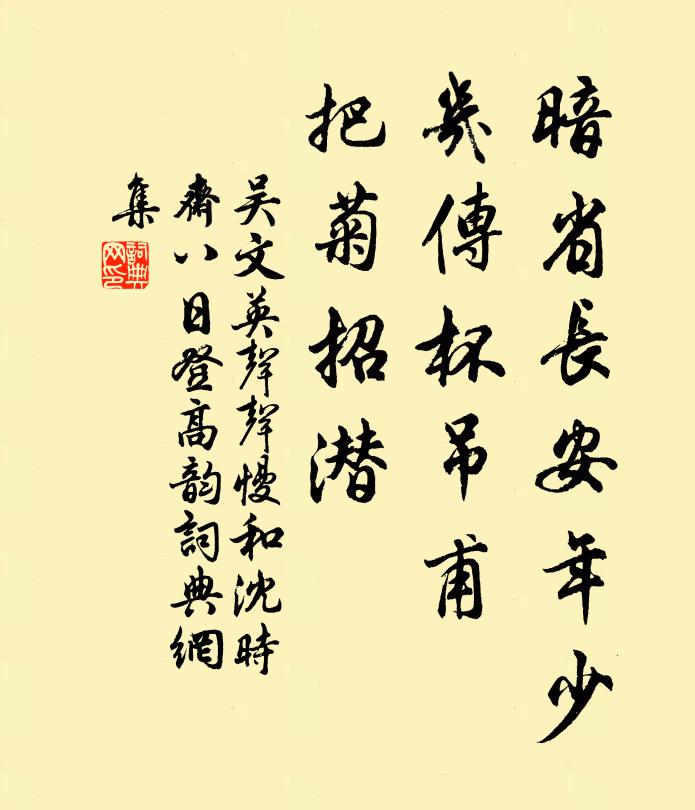 暗省長安年少
幾傳杯吊甫
把菊招潜
吴文英聲聲慢和沈時
齋八日登高韵詞典網
集
詞典網印